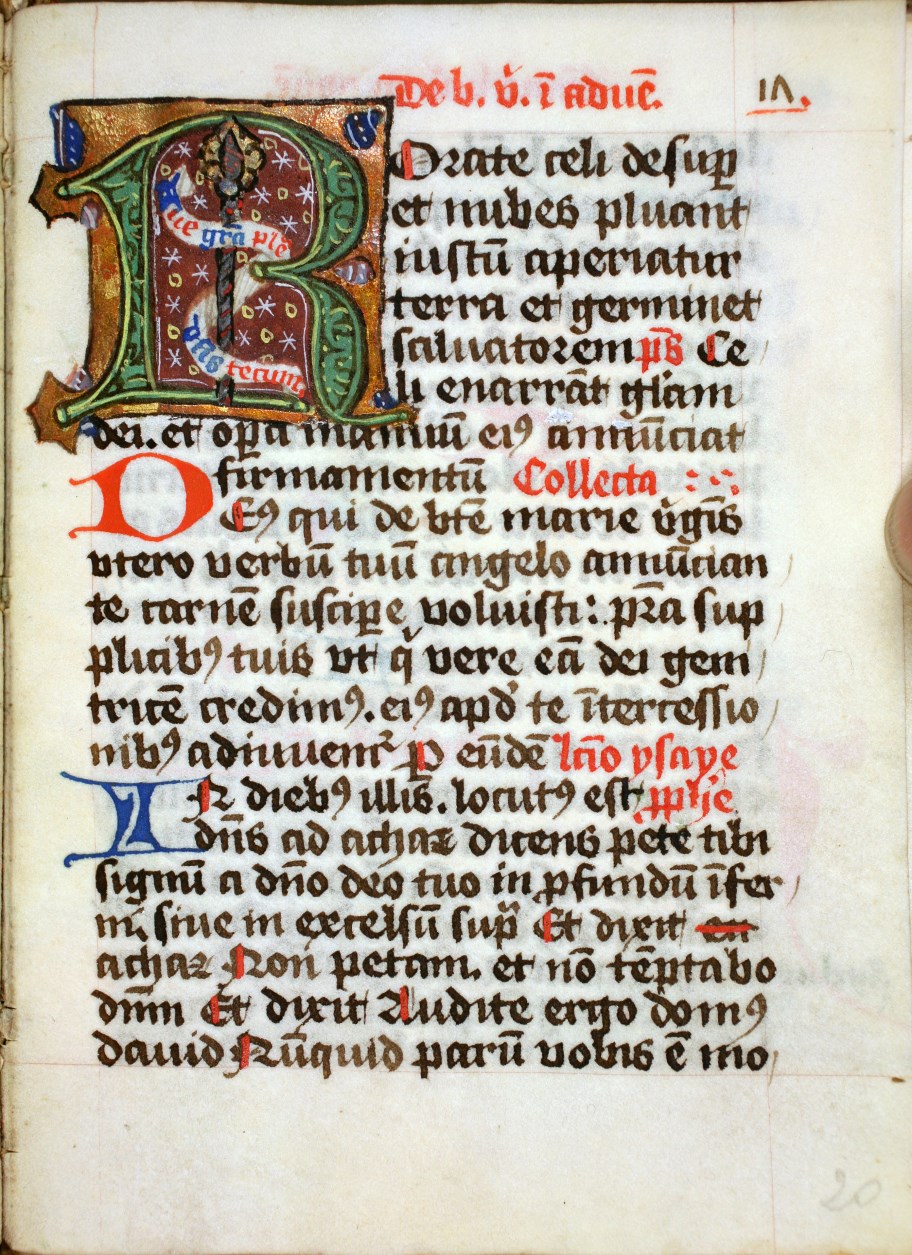 De b. v̄. ī aduē. ıʌ.
ROrate celi desuꝑ
et nubes pluant
iustū aperiatur
terra et germinet
saluatorem ps̄ Ce
li enarrāt gl̄am
dei. et oꝑa manuū eiꝰ annūciat
firmamentū Collecta
DEꝰ qui de btē marie v̄gīs
vtero verbū tuū angelo annūcian
te carnē susciꝑe voluisti: p̄ra sup
plicibꝰ tuis vt q̄ vere eā dei geni
tricē credimꝰ. eiꝰ apd̄ te ītercessio
nibꝰ adiuuent᷑ ꝑ eūdē lcīo ysaye
IN diebꝰ illis. locutꝰ est ꝓphē
dn̄s ad achaz dicens pete tibi
signū a dn̄o deo tuo in ꝓfundū īfer
ni, siue in excelsū sup̄ Et dixit
achaz Non petam. et nō tēptabo
dn̄m Et dixit Audite ergo domꝰ
dauid Nūquid parū vobis ē mo
Aue gr̄a plē
dn̄s tecum
20